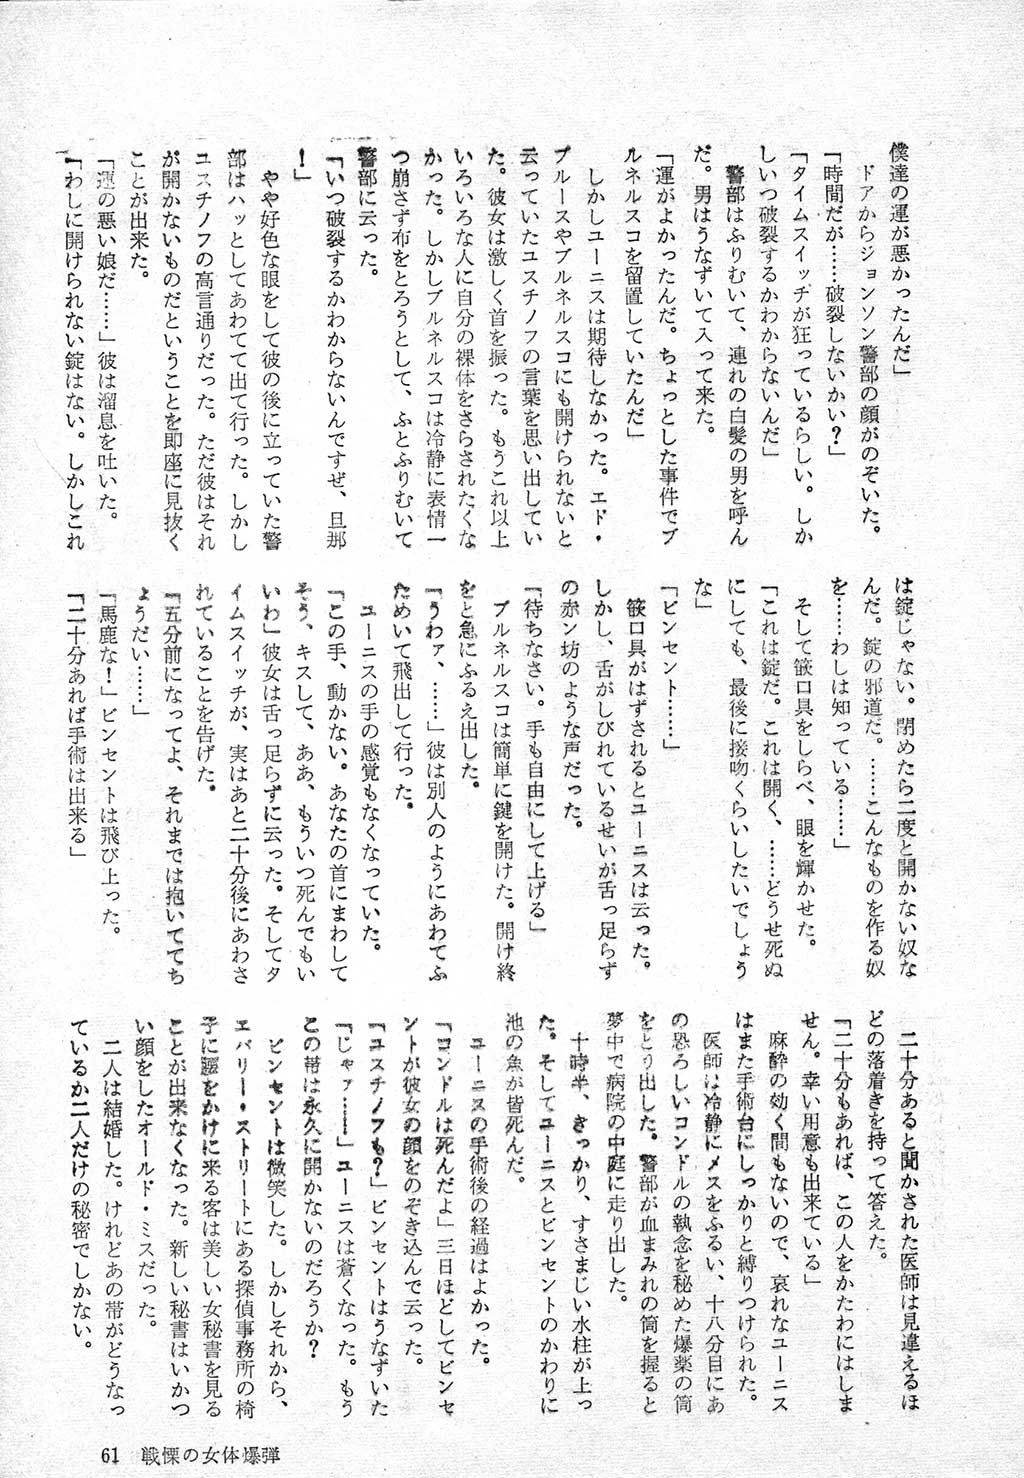 僕達の運が悪かったんだ」
ドアからジョンソン警部の顔がのぞいた。
「時間だが……破裂しないかい？」
「タイムスイッチが狂っているらしい。しか
しいつ破裂するかわからないんだ」
警部はふりむいて、連れの白髪の男を呼ん
だ。男はうなずいて入って来た。
「運がよかったんだ。ちょっとした事件でブ
ルネルスコを留置していたんだ」
しかしユーニスは期待しなかった。エド・
ブルースやブルネルスコにも開けられないと
云っていたユスチノフの言葉を思い出してい
た。彼女は激しく首を振った。もうこれ以上
いろいろな人に自分の裸体をさらされたくな
かった。しかしブルネルスコは冷静に表情一
つ崩さず布をとろうとして、ふとふりむいて
警部に云った。
「いつ破裂するかわからないんですぜ、旦那
！」
やや好色な眼をして彼の後に立っていた警
部はハッとしてあわてて出て行った。しかし
ユスチノフの高言通りだった。ただ彼はそれ
が開かないものだということを即座に見抜く
ことが出来た。
「運の悪い娘だ……」彼は溜息を吐いた。
「わしに開けられない錠はない。しかしこれ
は錠じゃない。閉めたら二度と開かない奴な
んだ。錠の邪道だ。……こんなものを作る奴
を……わしは知っている……」
そして篏口具をしらべ、眼を輝かせた。
「これは錠だ。これは開く、……どうせ死ぬ
にしても、最後に接吻くらいしたいでしょう
な」
「ビンセント……」
篏口具がはずされるとユーニスは云った。
しかし、舌がしびれているせいが舌っ足らず
の赤ン坊のような声だった。
「待ちなさい。手も自由にして上げる」
ブルネルスコは簡単に鍵を開けた。開け終
をと急にふるえ出した。
「うわァ、……」彼は別人のようにあわてふ
ためいて飛出して行った。
ユーニスの手の感覚もなくなっていた。
「この手、動かない。あなたの首にまわして
そう、キスして、ああ、もういつ死んでもい
いわ」彼女は舌っ足らずに云った。そしてタ
イムスイッチが、実はあと二十分後にあわさ
れていることを告げた。
「五分前になってよ、それまでは抱いててち
ょうだい……」
「馬鹿な！」ビンセントは飛び上った。
「二十分あれば手術は出来る」
二十分あると聞かされた医師は見違えるほ
どの落着きを持って答えた。
「二十分もあれば、この人をかたわにはしま
せん。幸い用意も出来ている」
麻酔の効く間もないので、哀れなユーニス
はまた手術台にしっかりと縛りつけられた。
医師は冷静にメスをふるい、十八分目にあ
の恐ろしいコンドルの執念を秘めた爆薬の筒
をとり出した。警部が血まみれの筒を握ると
夢中で病院の中庭に走り出した。
十時半、きっかり、すさまじい水柱が上っ
た。そしてユーニスとビンセントのかわりに
池の魚が皆死んだ。
ユーニスの手術後の経過はよかった。
「コンドルは死んだよ」三日ほどしてビンセ
ントが彼女の顔をのぞき込んで云った。
「ユスチノフも？」ビンセントはうなずいた
「じゃァ……」ユーニスは蒼くなった。もう
この帯は永久に開かないのだろうか？
ビンセントは微笑した。しかしそれから、
エバリー・ストリートにある探偵事務所の椅
子に腰をかけに来る客は美しい女秘書を見る
ことが出来なくなった。新しい秘書はいかつ
い顔をしたオールド・ミスだった。
二人は結婚した。けれどあの帯がどうなっ
ているか二人だけの秘密でしかない。
61 戦慄の女体爆弾